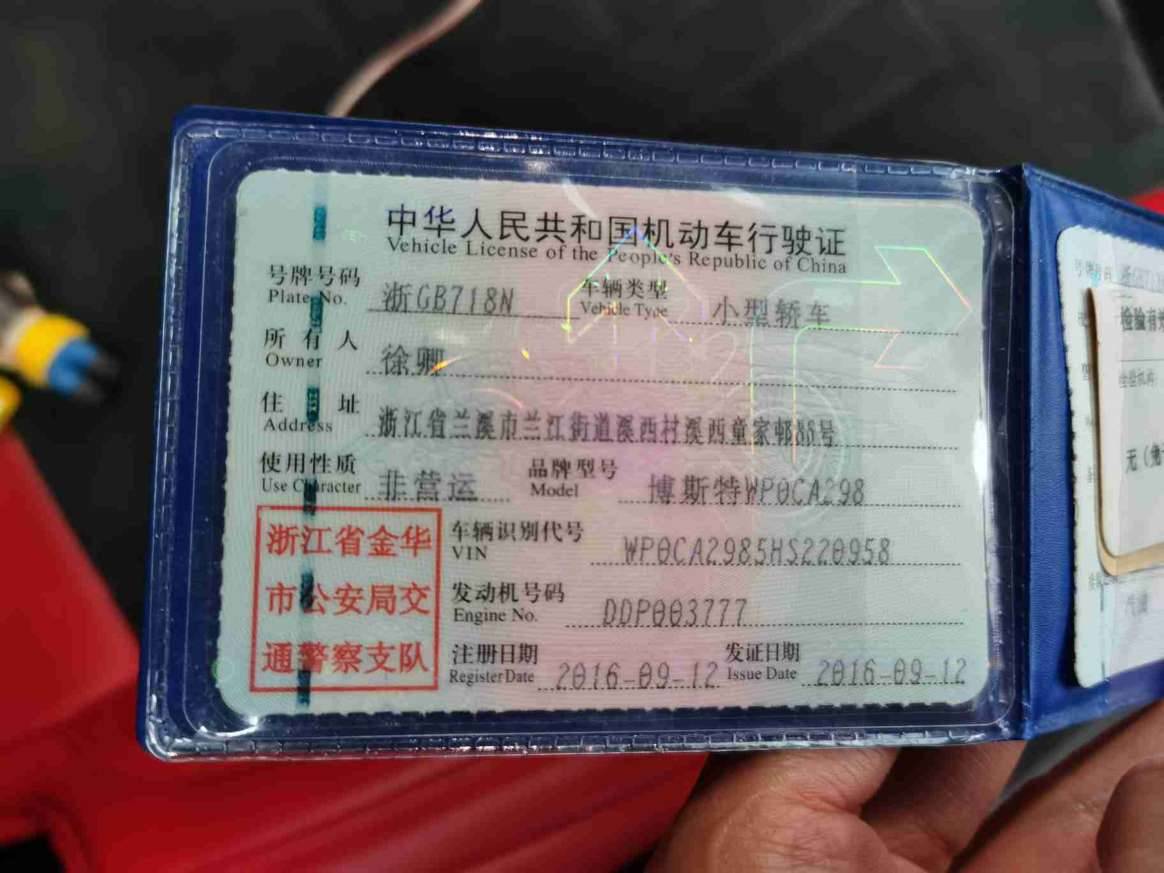 中华人民共和国机动车行驶证
Vehicle License of the People's Republic of China
号牌号码 浙GB718N 车辆类型 小型轿车
Plate No. Vehicle Type
所有人 徐卿
Owner
住址 浙江省兰溪市兰江街道溪西村溪西童家邨88号
Address
使用性质 非营运 品牌型号 博斯特WP0CA298
Use Character Model
浙江省金华
市公安局交
通警察支队
车辆识别代号 WP0CA2985HS220958
VIN
发动机号码 DDP003777
Engine No.
注册日期 2016-09-12 发证日期 2016-09-12
Register Date Issue Date